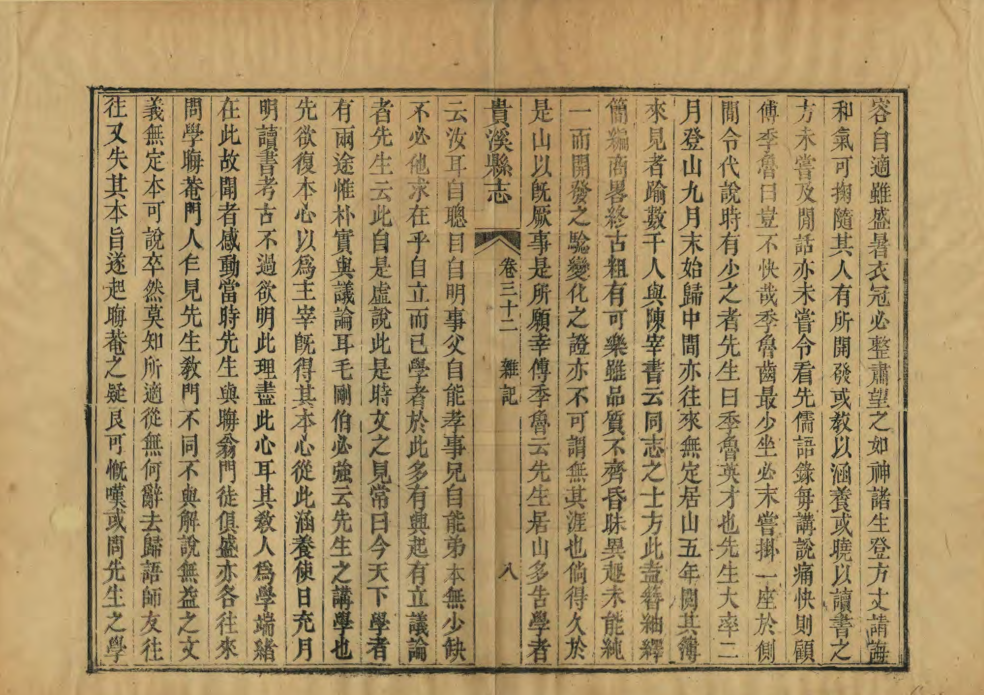 容自適雖盛暑衣冠必整肅望之如神諸生登方丈請誨
和氣可掬隨其人有所開發或教以涵養或曉以讀書之
方未嘗及閒話亦未嘗令看先儒語錄每講說痛快則顧
傅季魯曰豈不快哉季魯齒最少坐必末嘗掛一座於側
間令代說時有少之者先生曰季魯英才也先生大率二
月登山九月末始歸中間亦往來無定居山五年閱其簿
來見者踰數千人與陳宰書云同志之士方此盍簪紬繹
簡編商畧終古粗有可樂雖品質不齊昏昧異趣未能純
一而開發之驗變化之證亦不可謂無其涯也倘得久於
是山以旣厥事是所願幸傅季魯云先生居山多告學者
貴溪縣志 卷三十二 雜記 八
云汝耳自聰目自明事父自能孝事兄自能弟本無少缺
不必他求在乎自立而已學者於此多有興起有立議論
者先生云此自是虛說此是時文之見常曰今天下學者
有兩途惟朴實與議論耳毛剛伯必強云先生之講學也
先欲復本心以爲主宰旣得其本心從此涵養使日充月
明讀書考古不過欲明此理盡此心耳其教人爲學端緒
在此故聞者感動當時先生與晦翁門徒俱盛亦各往來
問學晦菴門人乍見先生教門不同不與解說無益之文
義無定本可說卒然莫知所適從無何辭去歸語師友往
往又失其本旨遂起晦菴之疑良可慨嘆或問先生之學